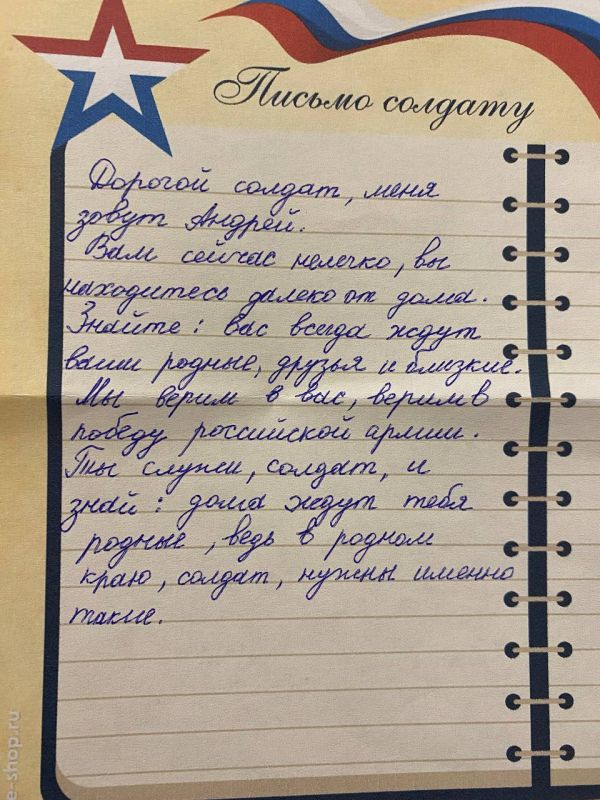 Письмо солдату
Дорогой солдат, меня
зовут Андрей.
Вам сейчас нелегко, вы
находитесь далеко от дома.
Знайте: вас всегда ждут
ваши родные, друзья и близкие.
Мы верим в вас, верим в
победу российской армии.
Ты служи, солдат, и
знай: дома ждут тебя
родные, ведь в родном
краю, солдат, нужны именно
такие.
e-shop.ru